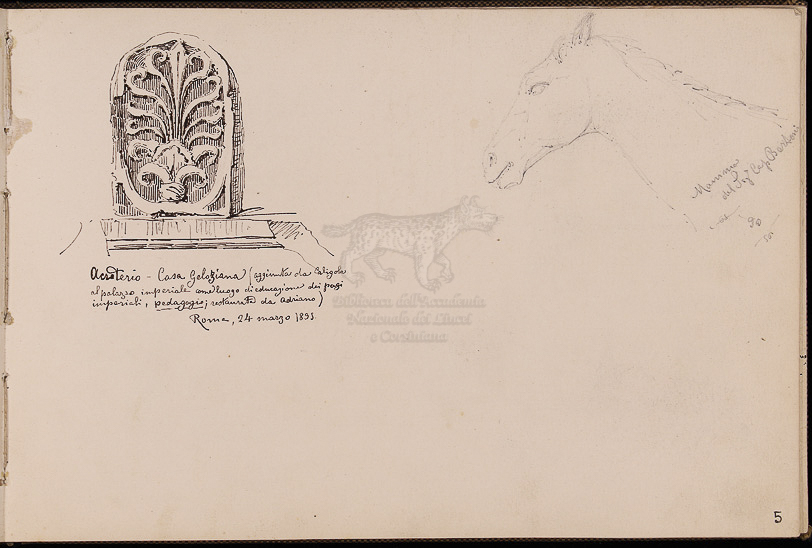 Acroterio - Casa Geloziana (aggiunta da Caligola
al palazzo imperiale come luogo di educazione dei paggi
imperiali, pedagogio; restaurato da Adriano)
Roma, 24 marzo 1893
del Sig. Cap.
90
Biblioteca dell'Accademia
Nazionale dei Lincei
e Corsiniana
5